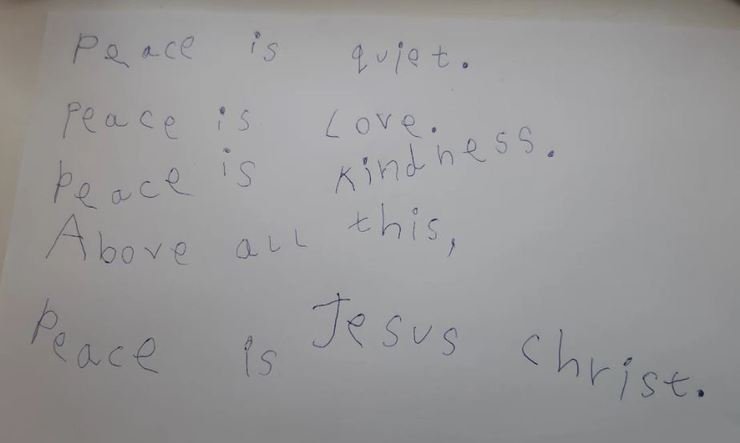 Peace is quiet.
Peace is Love.
Peace is kindness.
Above all this,
Peace is Jesus christ.